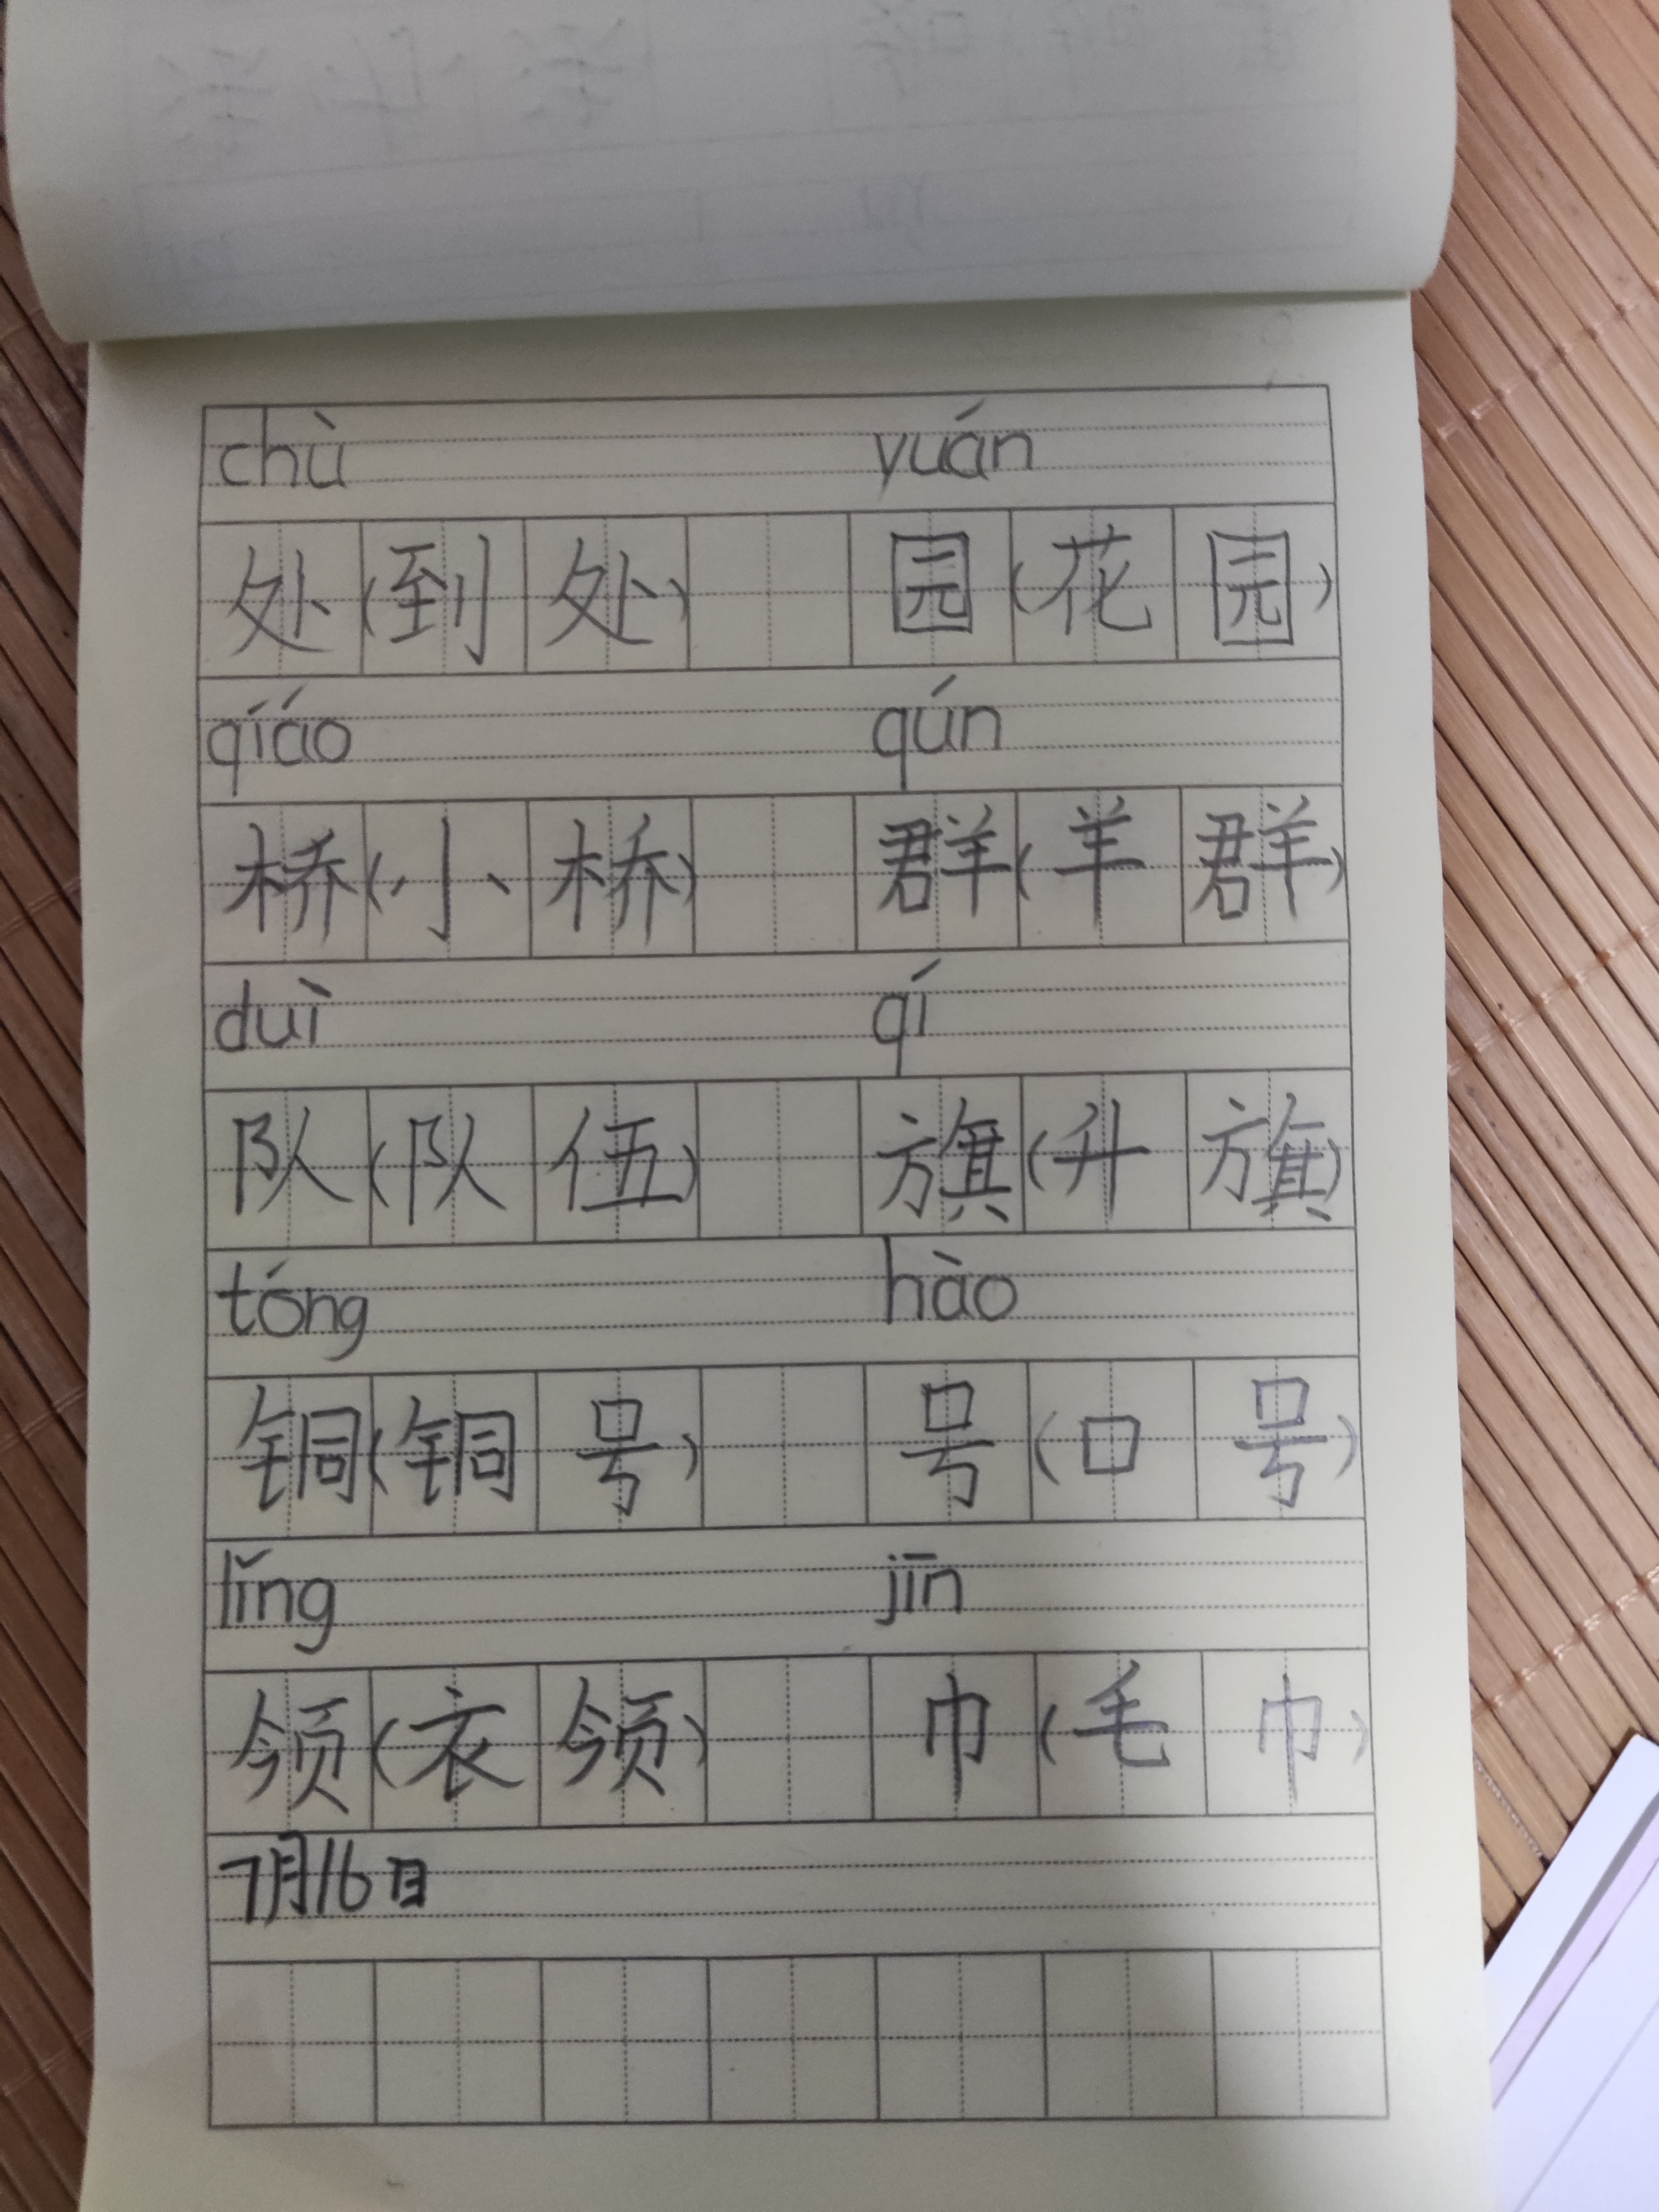 chù yuán
处(到处) 园(花园)
qiáo qún
桥(小桥) 群(羊群)
duì qí
队(队伍) 旗(升旗)
tóng hào
铜(铜号) 号(口号)
lǐng jīn
领(衣领) 巾(毛巾)
7月16日